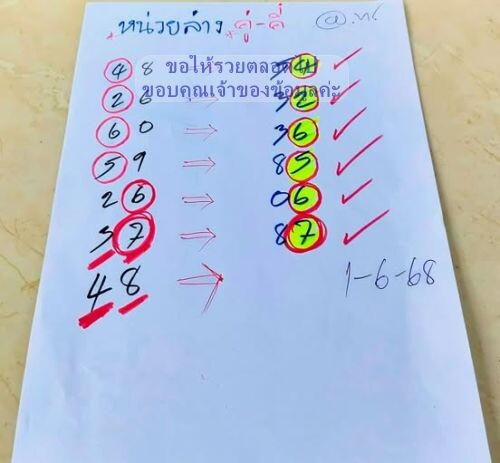 หน่วยล่าง คู่-คี่
ขอให้รวยตลอดไป
ขอบคุณเจ้าของข้อมูลค่ะ
4 8 → 54 ✓
2 6 → 32 ✓
6 0 → 36 ✓
5 9 → 85 ✓
2 6 → 06 ✓
5 7 → 87 ✓
4 8 →
1-6-68